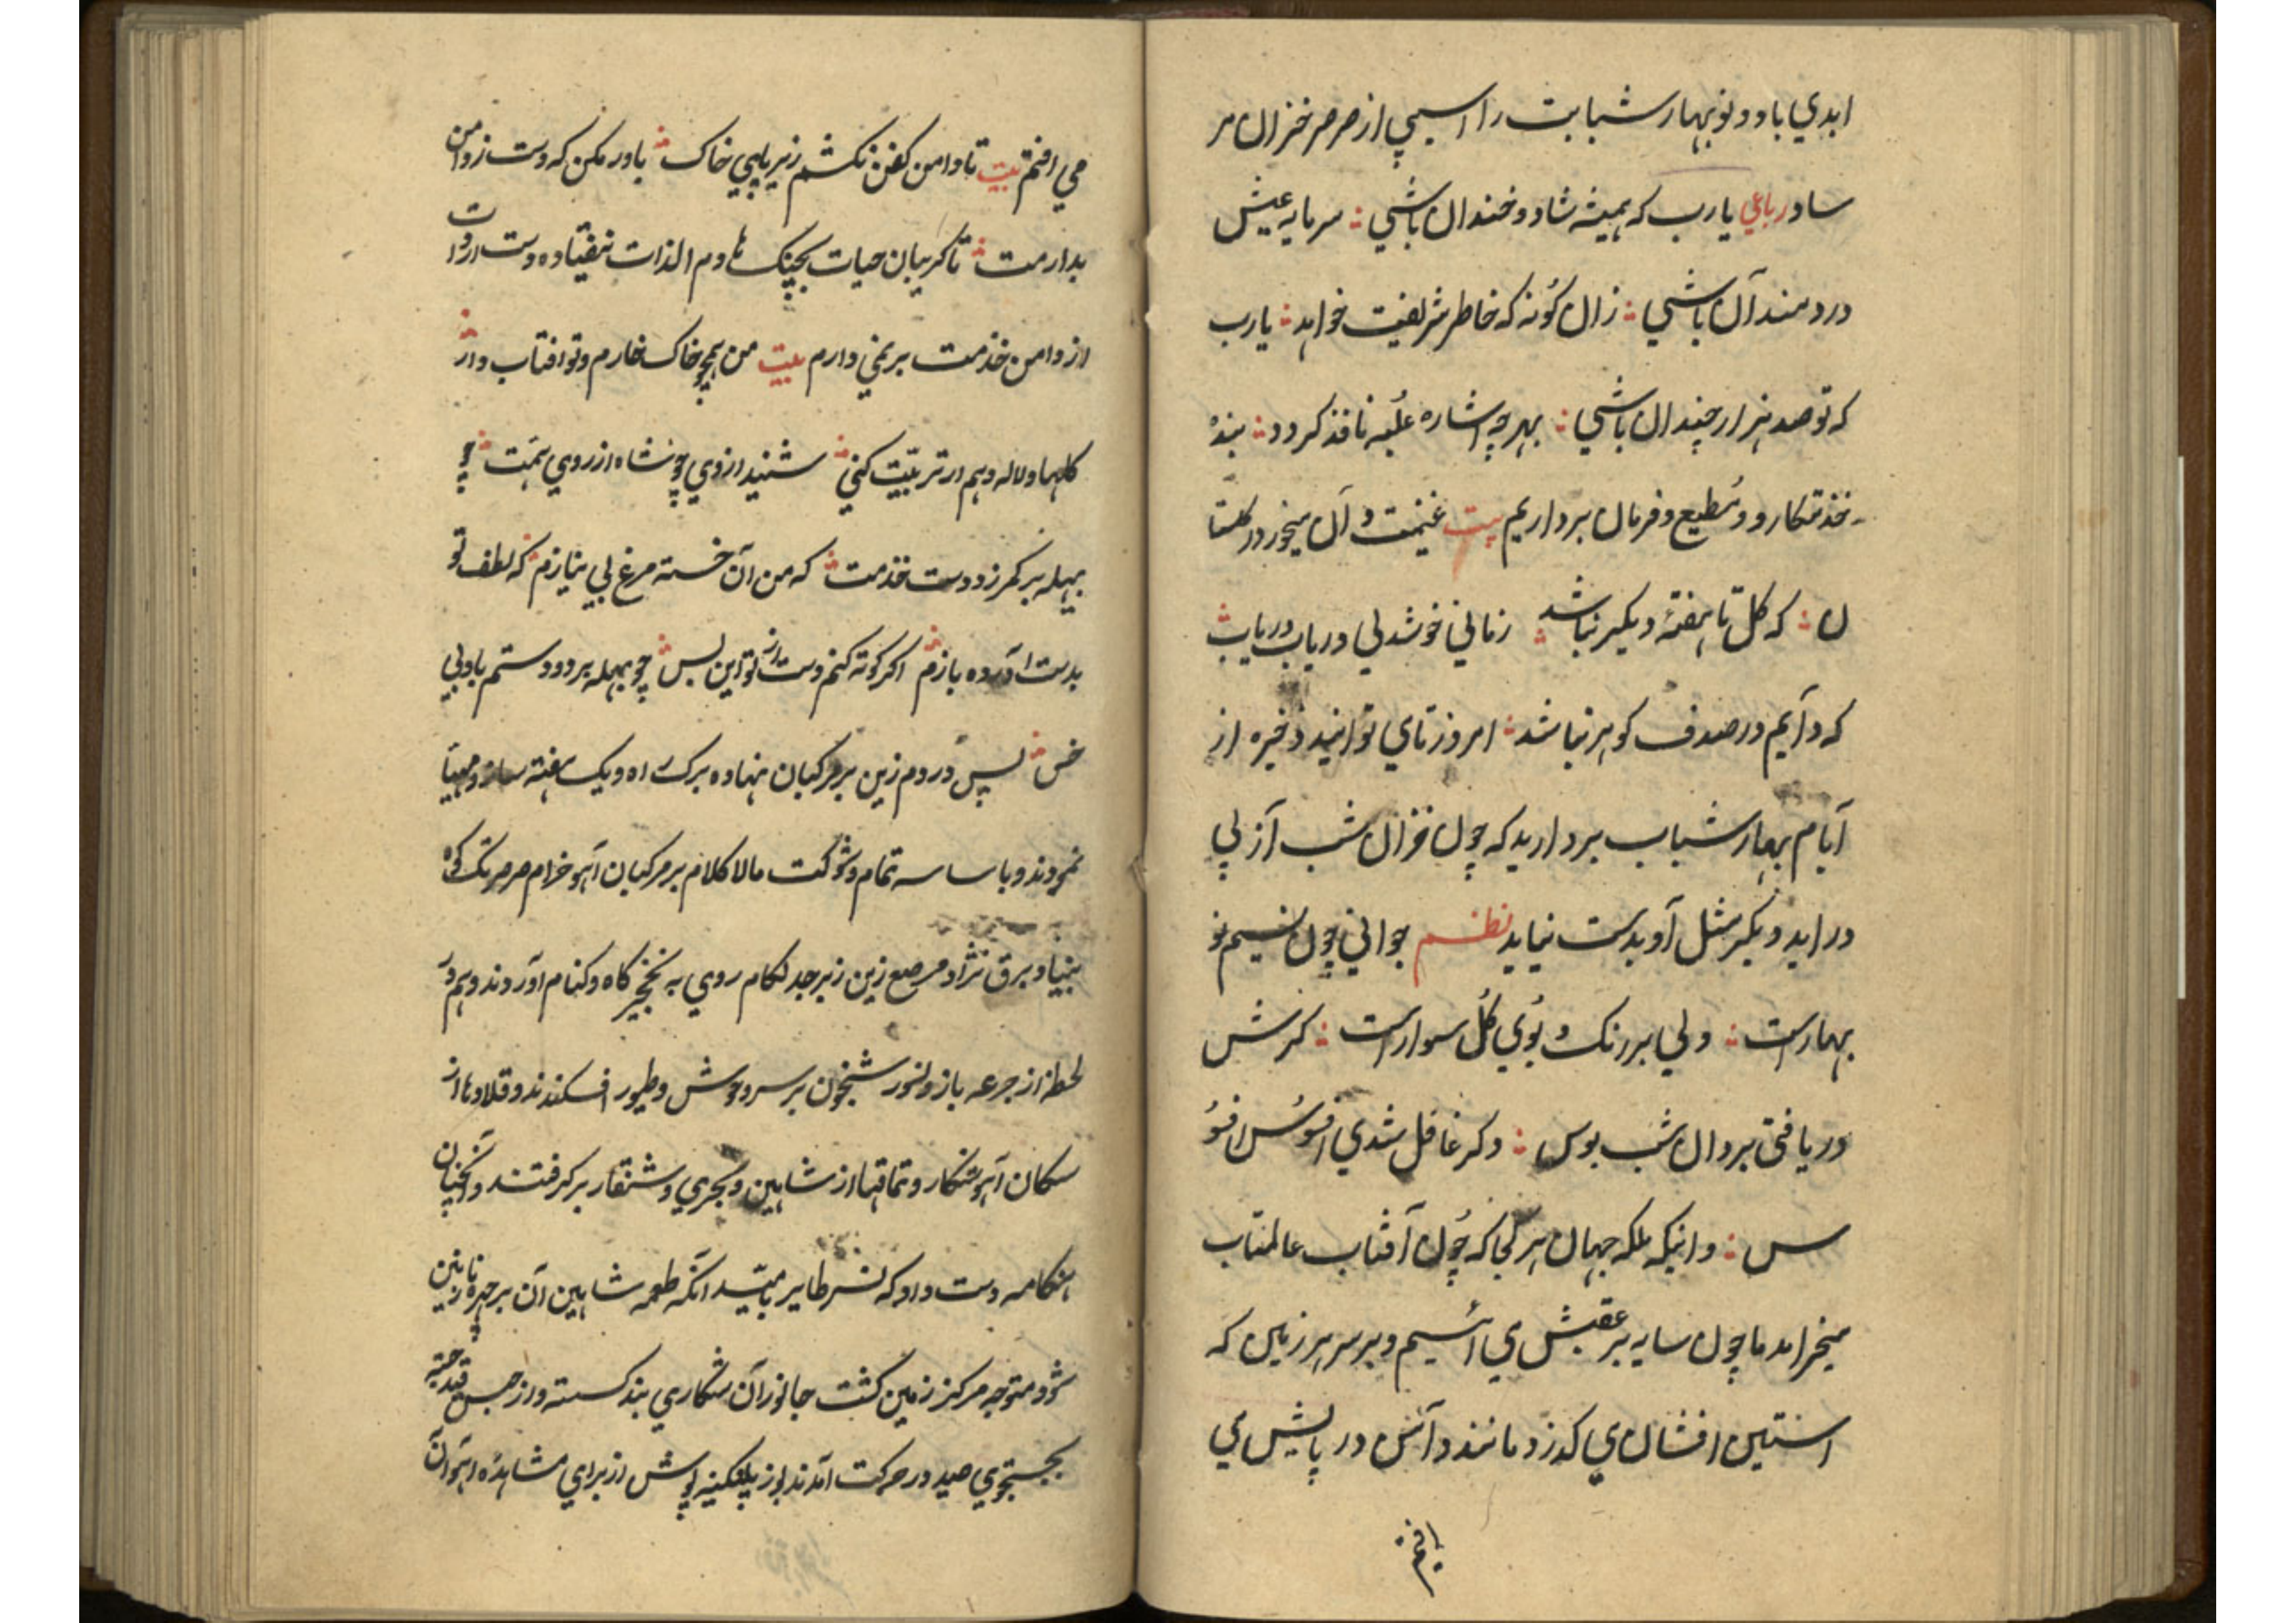 ابدي باد و نوبهار شبابت را اسیبي از صرصر خزان مر
ساد رباعي یارب که همیشه شاد و خندان باشي ؛ سرمایه عیش
دردمندان باشي ؛ زان گونه که خاطر شریفت خواهد ؛ یارب
که تو صد هزار چندان باشي ؛ بهر چه اشاره علیه نافذ کردد ؛ بنده
خذمتکار و مطیع و فرمان برداریم بیت غنیمت دان میخور در کلستا
ن ؛ که کل تا هفتهٔ دیکر نباشد ؛ زماني خوشدلي دریاب دریاب
که دایم در صدف کوهر نباشد ؛ امروز تا مي توانید ذخیره از
ایام بهار شباب بردارید که چون خزان شب از پي
در اید دیکر مثل او بدست نیاید نظم جواني چون نسیم نو
بهار است ؛ ولي بر رنک و بوي کل سوار است ؛ کرش
دریافتي بردانش ببوس ؛ وکر غافل شدي افسوس افسو
س ؛ و انیکه ملکه جهان هر کجا که چون آفتاب عالمتاب
میخرامد ما چون سایه بر عقبش مي ائیم و بر سر هر زمین که
استین افشان مي کذرد مانند دامن در پایش مي
افتم
مي افتم بیت تا دامن کفن نکشم زیر پایي خاک ؛ باور مکن که دست ز دامن
بدارمت ؛ تا کریبان حیات بچنک هادم الذات نیفتاده دست ارادت
از دامن خذمت بر نمي دارم بیت من همچو خاک خارم و تو افتاب وار ؛
کلها و لاله دهم ار تربیت کني ؛ شنید از وي چو شاه از روي همت ؛ چو
بهله بر کمر زد دست خذمت ؛ که من آن خسته مرغ بي نیازم ؛ که لطف تو
بدست اورده بازم ؛ اکر کوته کنم دست از تو این بس ؛ چو بهله بر دو دستم باد بي
خس ؛ پس در دم زین بر مرکبان نهاده برک راه و یک هفته ساز و مهیا
نمودند و با ساسه تمام و شوکت مالاکلام بر مرکبان آهو خرام صرصر تک کوه
بنیاد برق نژاد مرصع زین زبرجد لکام روي به نخجیر کاه و کنام آوردند و هم در
لحظه از جرعه باز و لنور شبخون بر سر وحوش و طیور افکندند و قلادها از
سکان آهو شکار و تماقها از شاهین و بحري و شنقار بر کرفتند و انچنان
هنکامه دست داد که نسر طایر بامید انکه طعمه شاهین آن بر چهره نازنین
شود متوجه مرکز زمین کشت جانوران شکاري بند کسسته و از حبس قید جسته
بجستجوي صید در حرکت آمدند یوز پلنکینه پوش از براي مشاهدهٔ اهوان